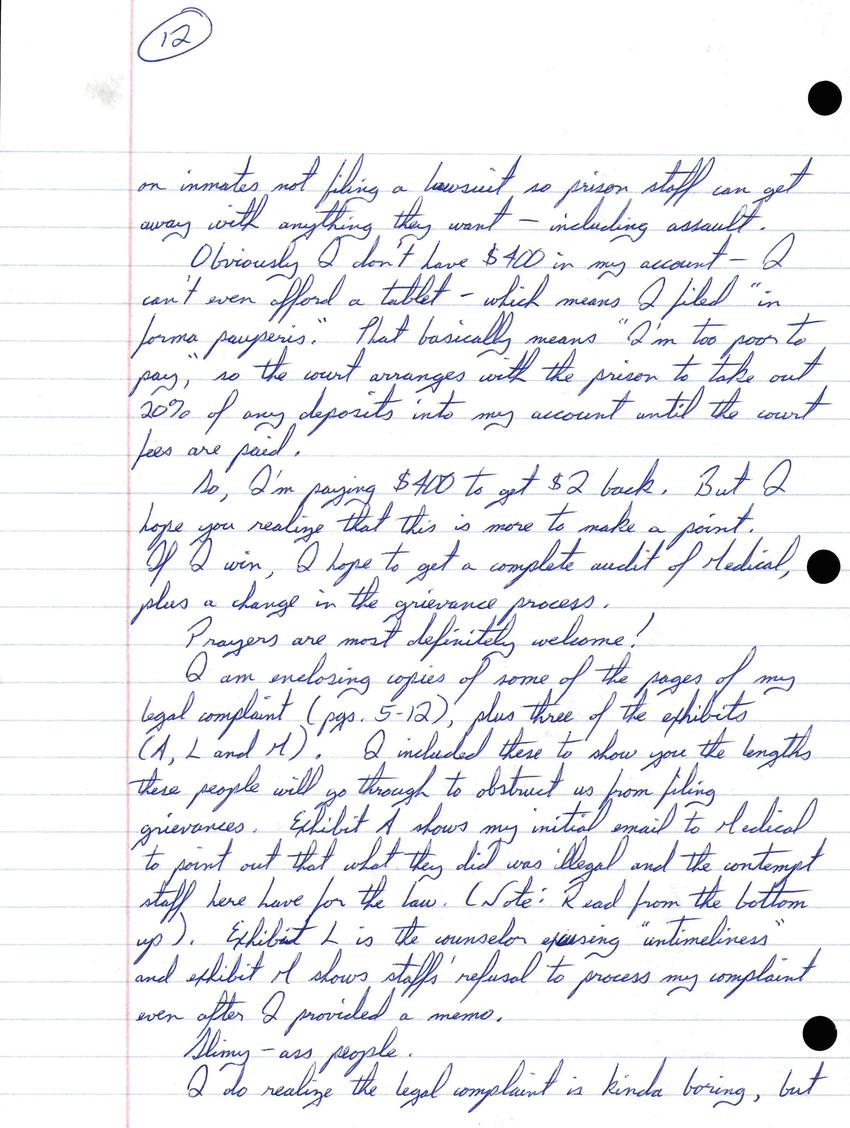 12
on inmates not filing a lawsuit so prison staff can get
away with anything they want – including assault.
Obviously I don't have $400 in my account – I
can't even afford a tablet – which means I filed "in
forma pauperis." That basically means "I'm too poor to
pay," so the court arranges with the prison to take out
20% of any deposits into my account until the court
fees are paid.
So, I'm paying $400 to get $2 back. But I
hope you realize that this is more to make a point.
If I win, I hope to get a complete audit of Medical,
plus a change in the grievance process.
Prayers are most definitely welcome!
I am enclosing copies of some of the pages of my
legal complaint (pgs. 5-12), plus three of the exhibits
(A, L and M). I included these to show you the lengths
these people will go through to obstruct us from filing
grievances. Exhibit A shows my initial email to Medical
to point out that what they did was illegal and the contempt
staff here have for the law. (Note: Read from the bottom
up). Exhibit L is the counselor excusing "untimeliness"
and exhibit M shows staffs' refusal to process my complaint
even after I provided a memo.
Slimy-ass people.
I do realize the legal complaint is kinda boring, but